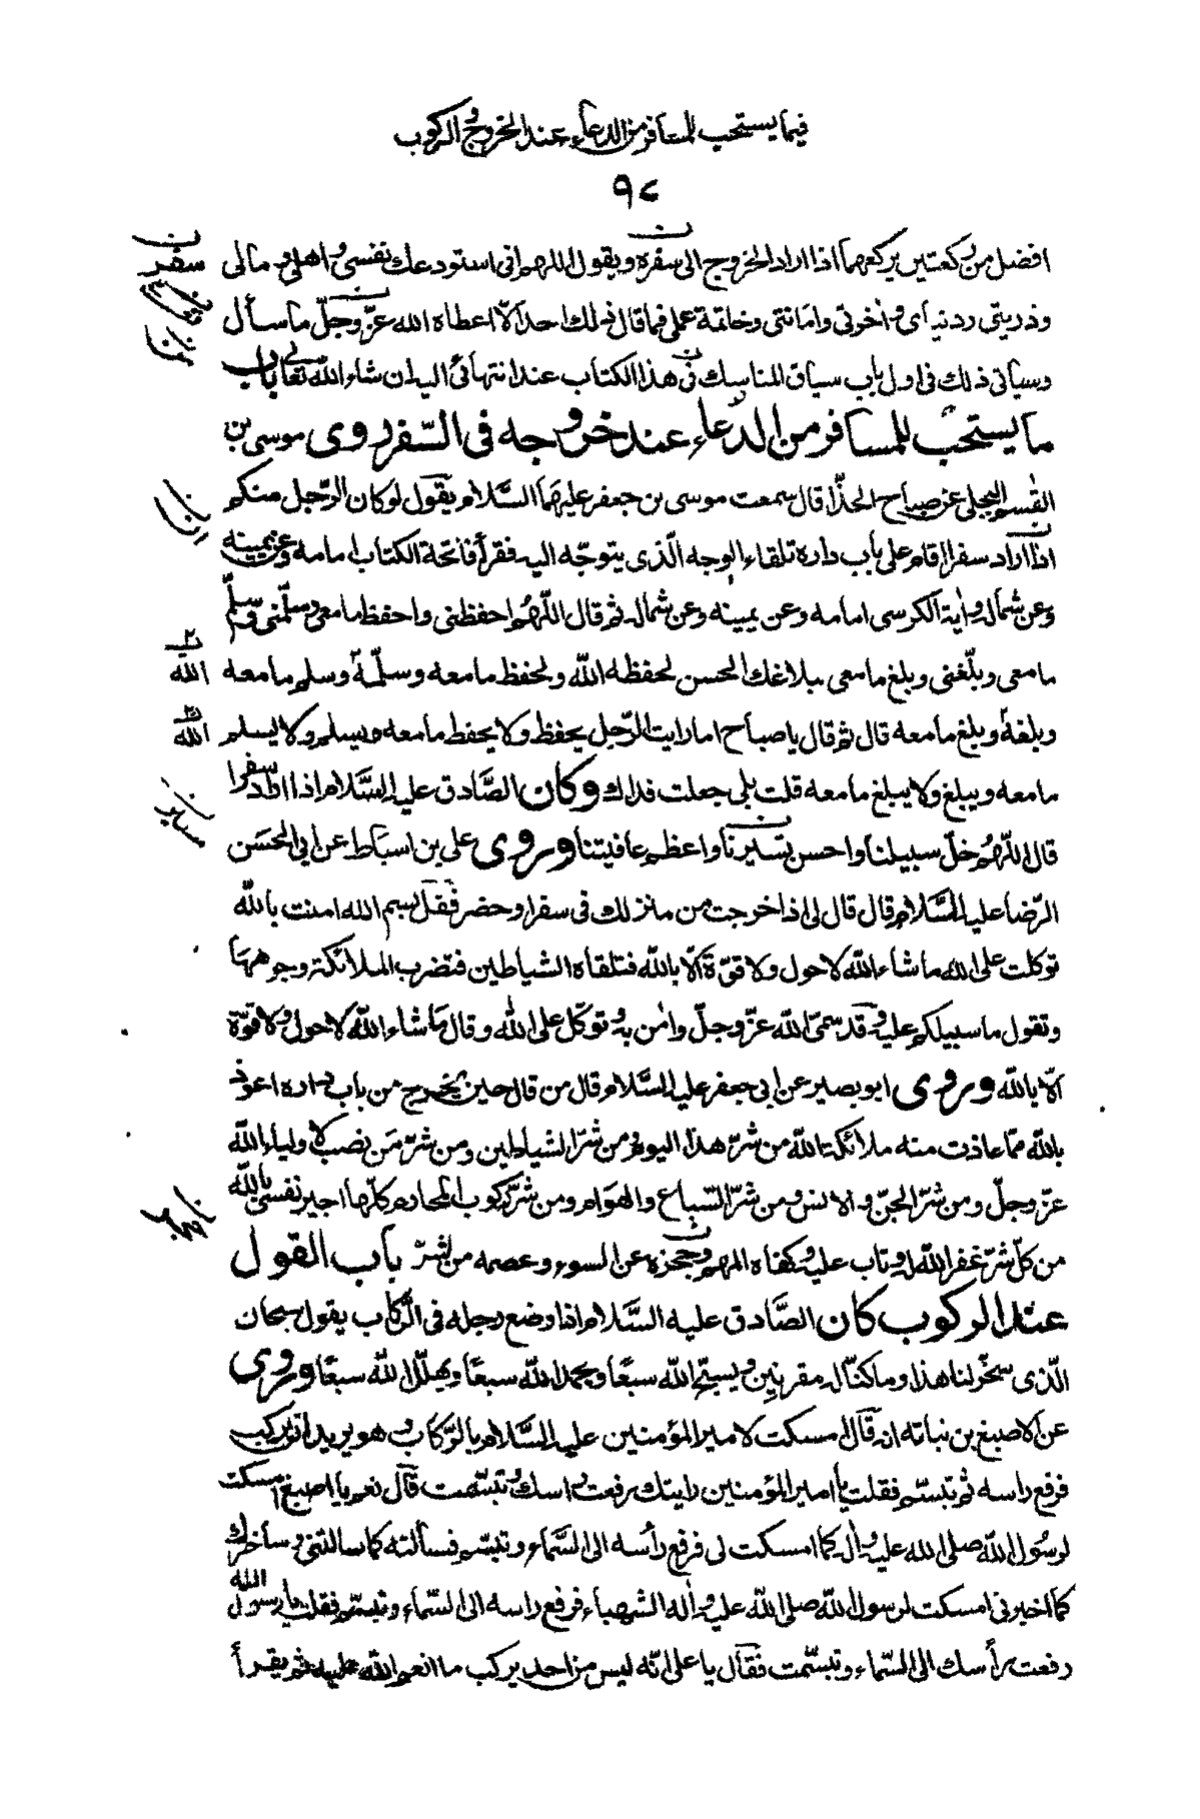 فيما يستحب للمسافر من الدعاء عند الخروج والركوب
٩٢
افضل من ركعتين يركعهما اذا اراد الخروج الى سفره ويقول اللهم انى استودعك نفسى واهلى ومالى
وذريتى ودنياى واخرتى وامانتى وخاتمة عملى فما قال ذلك احد الّا اعطاه الله عزّ وجلّ ما سأل
وسياتى ذلك فى اول باب سياق المناسك فى هذا الكتاب عند انتهائى اليه ان شاء الله تعالى باب
ما يستحبّ للمسافر من الدعاء عند خروجه فى السّفر روى موسى بن
القسم البجلى عن صباح الحذّا قال سمعت موسى بن جعفر عليهما السَّلام يقول لو كان الرّجل منكم
اذا اراد سفرا اقام على باب داره تلقاء الوجه الّذى يتوجّه اليه فقرأ فاتحة الكتاب امامه وعن يمينه
وعن شماله واية الكرسى امامه وعن يمينه وعن شماله ثم قال اللّهمّ احفظنى واحفظ ما معى وسلّمنى وسلّم
ما معى وبلّغنى وبلغ ما معى ببلاغك الحسن لحفظه اللّه ولحفظ ما معه وسلّمه وسلم ما معه
وبلغه وبلغ ما معه قال ثم قال يا صباح اما رايت الرّجل يحفظ ولا يحفظ ما معه ويسلم ولا يسلم
ما معه ويبلغ ولا يبلغ ما معه قلت بلى جعلت فداك وكان الصَّادق عليه السَّلام اذا اراد سفرا
قال اللّهمّ خلّ سبيلنا واحسن تسييرنا واعظم عافيتنا وروى على بن اسباط عن ابى الحسَن
الرّضا عليه السَّلام قال قال لى اذا خرجت من منزلك فى سفر او حضر فقل بسم الله امنت باللّه
توكلت على الله ما شاء اللّه لا حول ولا قوّة الّا باللّه فتلقاه الشياطين فتضرب الملائكة وجوهها
وتقول ما سبيلكم عليه وقد سمّى اللّه عزّ وجلّ وامن به وتوكّل على اللّه وقال ما شاء اللّه لا حول ولا قوّة
الّا باللّه وروى ابو بصير عن ابى جعفر عليه السَّلام قال من قال حين يخرج من باب داره اعوذ
باللّه ممّا عاذت منه ملائكة اللّه من شرّ هذا اليوم ومن شرّ الشياطين ومن شرّ من نصب لاولياء اللّه
عزّ وجلّ ومن شرّ الجنّ والانس ومن شرّ السّباع والهوام ومن شرّ ركوب المحارم كلّها اجير نفسى باللّه
من كلّ شرّ غفر اللّه له وتاب عليه وكفاه المهم وحجزه عن السوء وعصمه من الشرّ باب القول
عند الركوب كان الصَّادق عليه السَّلام اذا وضع رجله فى الركاب يقول سبحان
الّذى سخّر لنا هذا وما كنّا له مقرنين ويسبّح اللّه سبعًا ويحمد اللّه سبعًا ويهلّل اللّه سبعًا وروى
عن الاصبغ بن نباته انه قال امسكت لامير المؤمنين عليه السَّلام بالرّكاب وهو يريد ان يركب
فرفع راسه ثم تبسّم فقلت يا امير المؤمنين رايتك رفعت راسك وتبسّمت قال نعم يا اصبغ امسكت
لرسول اللّه صلى الله عليه واله كما امسكت لى فرفع رأسه الى السَّماء وتبسّم فسألته كما سالتنى وساخبرك
كما اخبرنى امسكت لرسول اللّه صلى اللّه عليه واله الشهباء فرفع راسه الى السّماء وتبسّم فقلت يا رسول الله
رفعت رأسك الى السّماء وتبسّمت فقال يا على انّه ليس من احد يركب ما انعم اللّه عليه ثم يقرأ